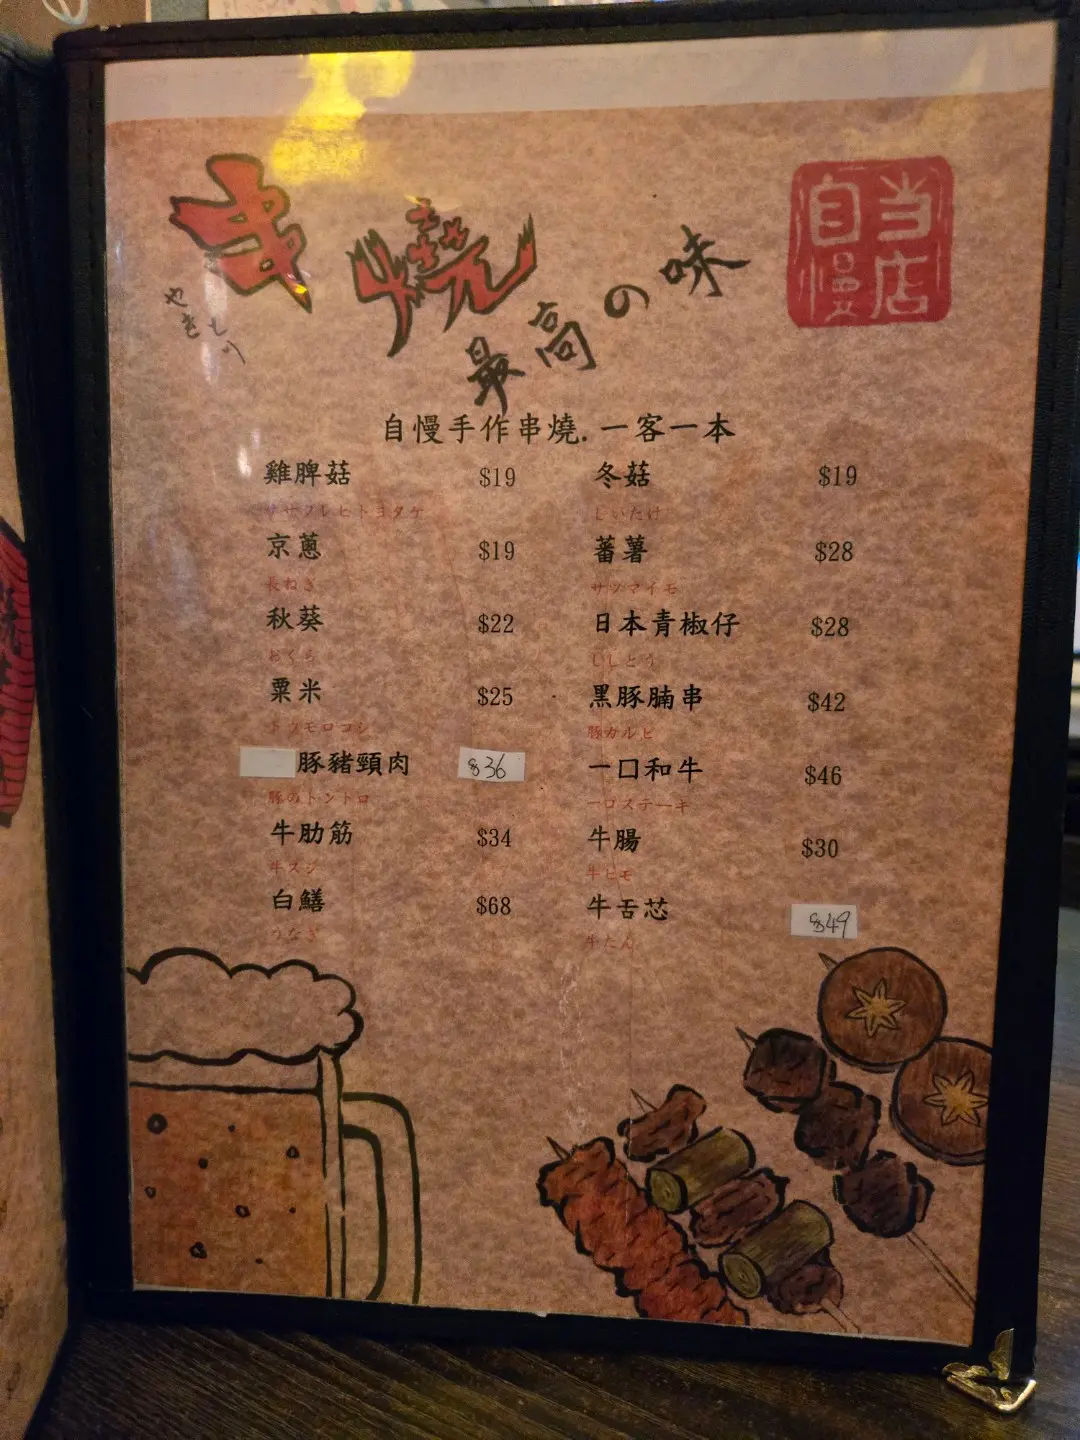 串燒
やきとり
最高の味
当店
自慢
自慢手作串燒.一客一本
雞脾菇 $19
ササクレヒトヨタケ
京蔥 $19
長ねぎ
秋葵 $22
おくら
粟米 $25
トウモロコシ
豚豬頸肉 $36
豚のトントロ
牛肋筋 $34
牛スジ
白鱔 $68
うなぎ
冬菇 $19
しいたけ
蕃薯 $28
サツマイモ
日本青椒仔 $28
ししとう
黑豚腩串 $42
豚カルビ
一口和牛 $46
一口ステーキ
牛腸 $30
牛ヒモ
牛舌芯 $49
牛たん